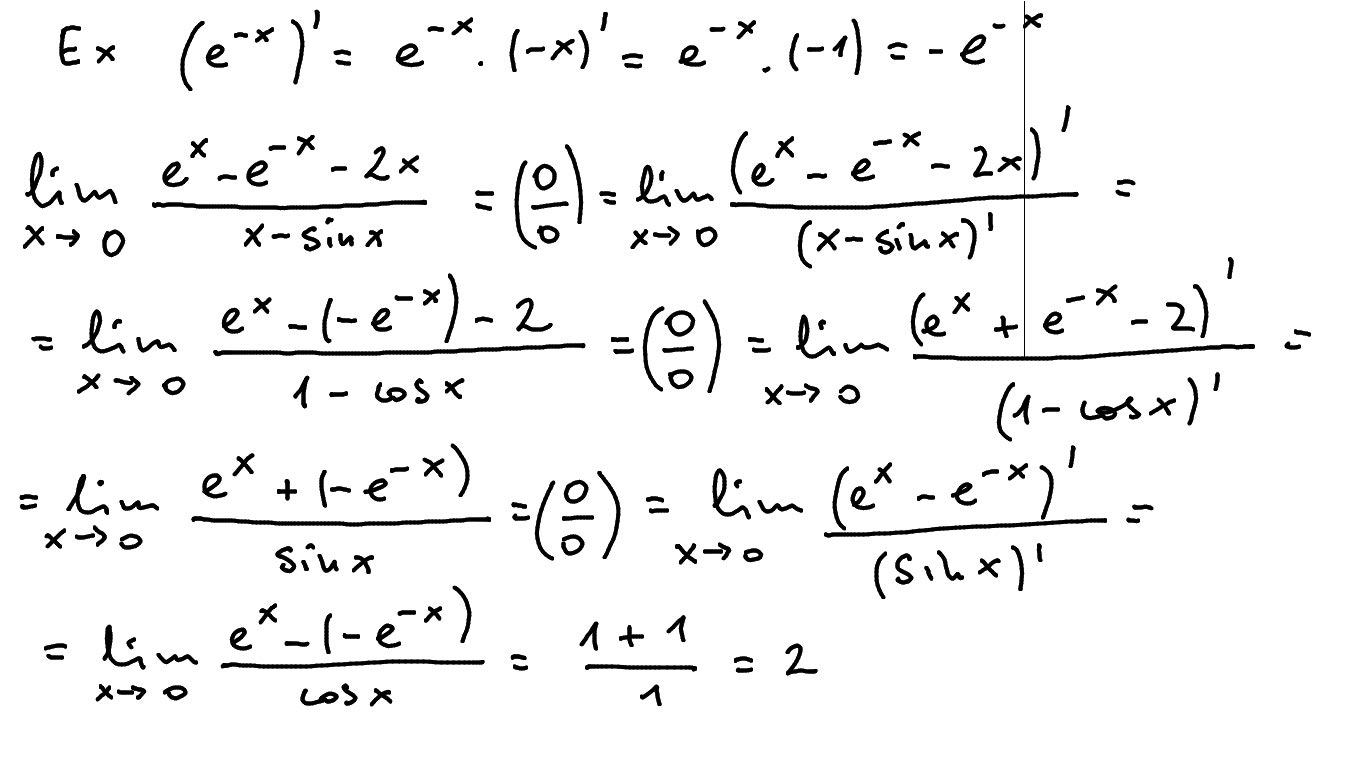 Ex (e^{-x})' = e^{-x} · (-x)' = e^{-x} · (-1) = -e^{-x}
lim_{x→0} \frac{e^x - e^{-x} - 2x}{x - sin x} = (\frac{0}{0}) = lim_{x→0} \frac{(e^x - e^{-x} - 2x)'}{(x - sin x)'} =
= lim_{x→0} \frac{e^x - (-e^{-x}) - 2}{1 - cos x} = (\frac{0}{0}) = lim_{x→0} \frac{(e^x + e^{-x} - 2)'}{(1 - cos x)'} =
= lim_{x→0} \frac{e^x + (-e^{-x})}{sin x} = (\frac{0}{0}) = lim_{x→0} \frac{(e^x - e^{-x})'}{(sin x)'} =
= lim_{x→0} \frac{e^x - (-e^{-x})}{cos x} = \frac{1 + 1}{1} = 2